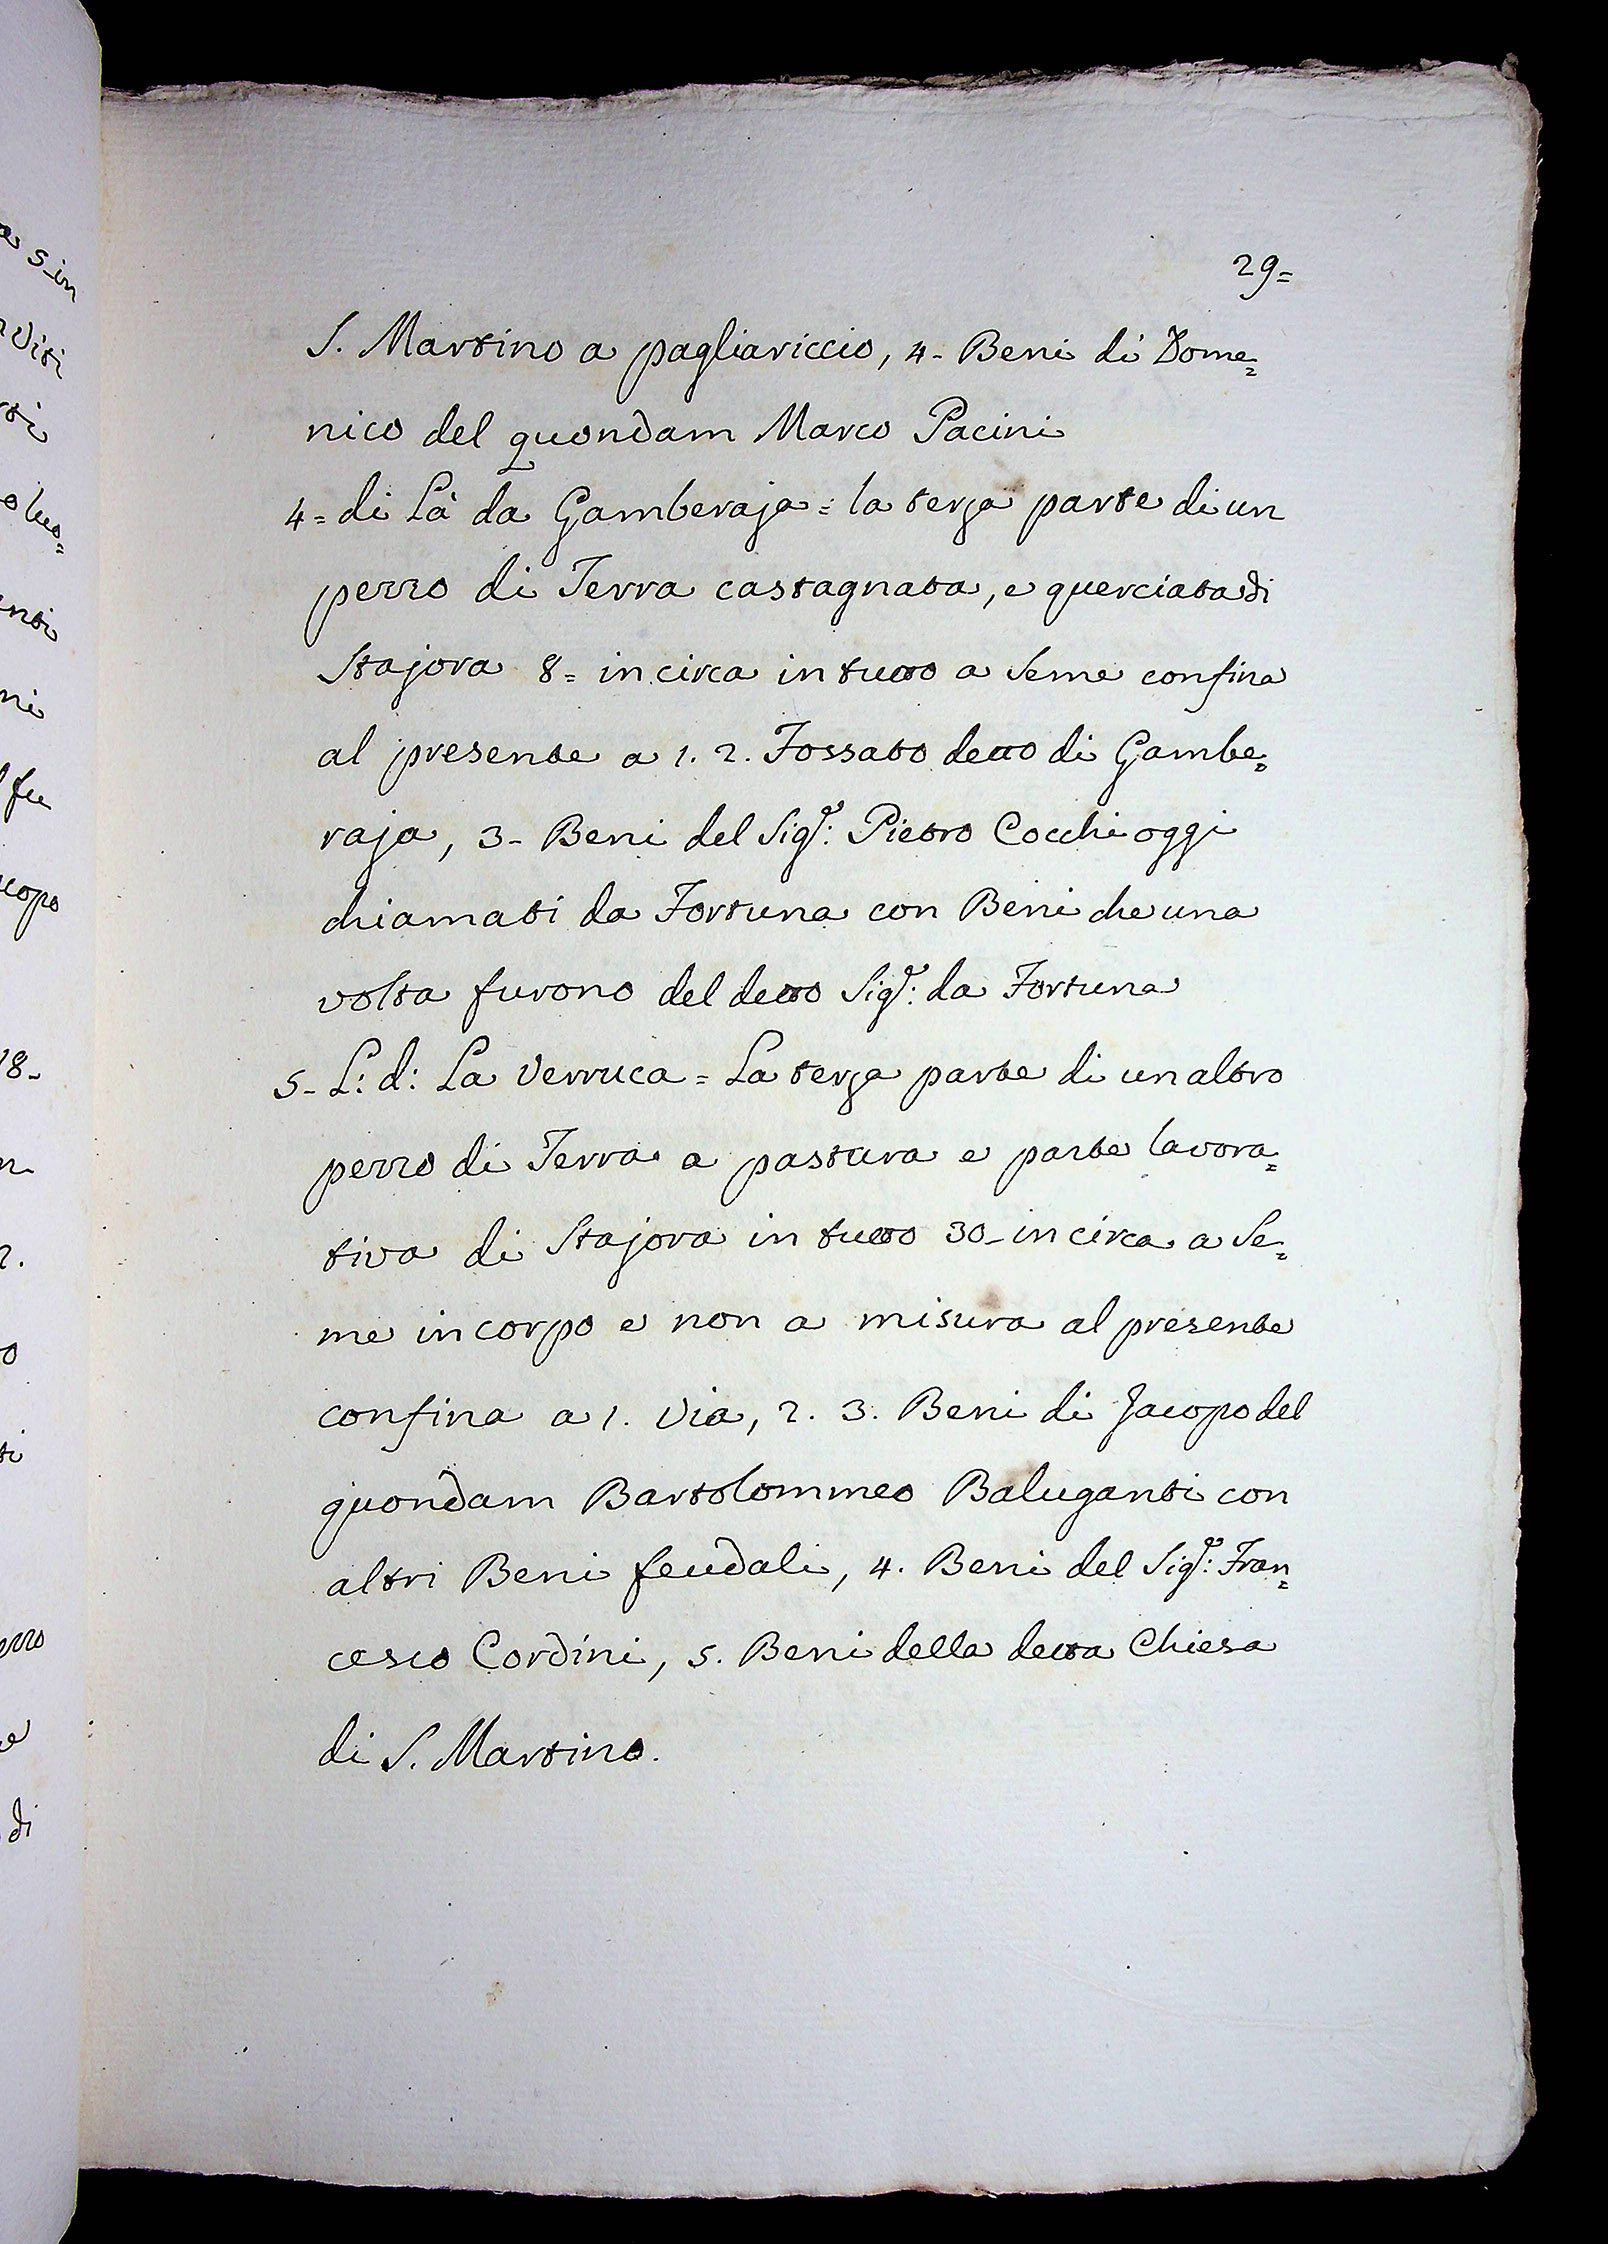 29=
S. Martino a pagliariccio, 4- Beni di Dome=
nico del quondam Marco Pacini
4= di Là da Gamberaja = la terza parte di un
pezzo di Terra castagnata, e querciata di
Stajora 8= in circa in tutto a Seme confina
al presente a 1. 2. Fossato detto di Gambe=
raja, 3- Beni del Sigr: Pietro Cocchi oggi
chiamati da Fortuna con Beni che una
volta furono del detto Sigr: da Fortuna
5- L: d: La Verruca = La terza parte di un altro
pezzo di Terra a pastura e parte lavora=
tiva di Stajora in tutto 30- in circa a Se=
me in corpo e non a misura al presente
confina a 1. Via, 2. 3. Beni di Jacopo del
quondam Bartolommeo Baluganti con
altri Beni feudali, 4. Beni del Sigr: Fran=
cesco Cordini, 5. Beni della detta Chiesa
di S. Martino.